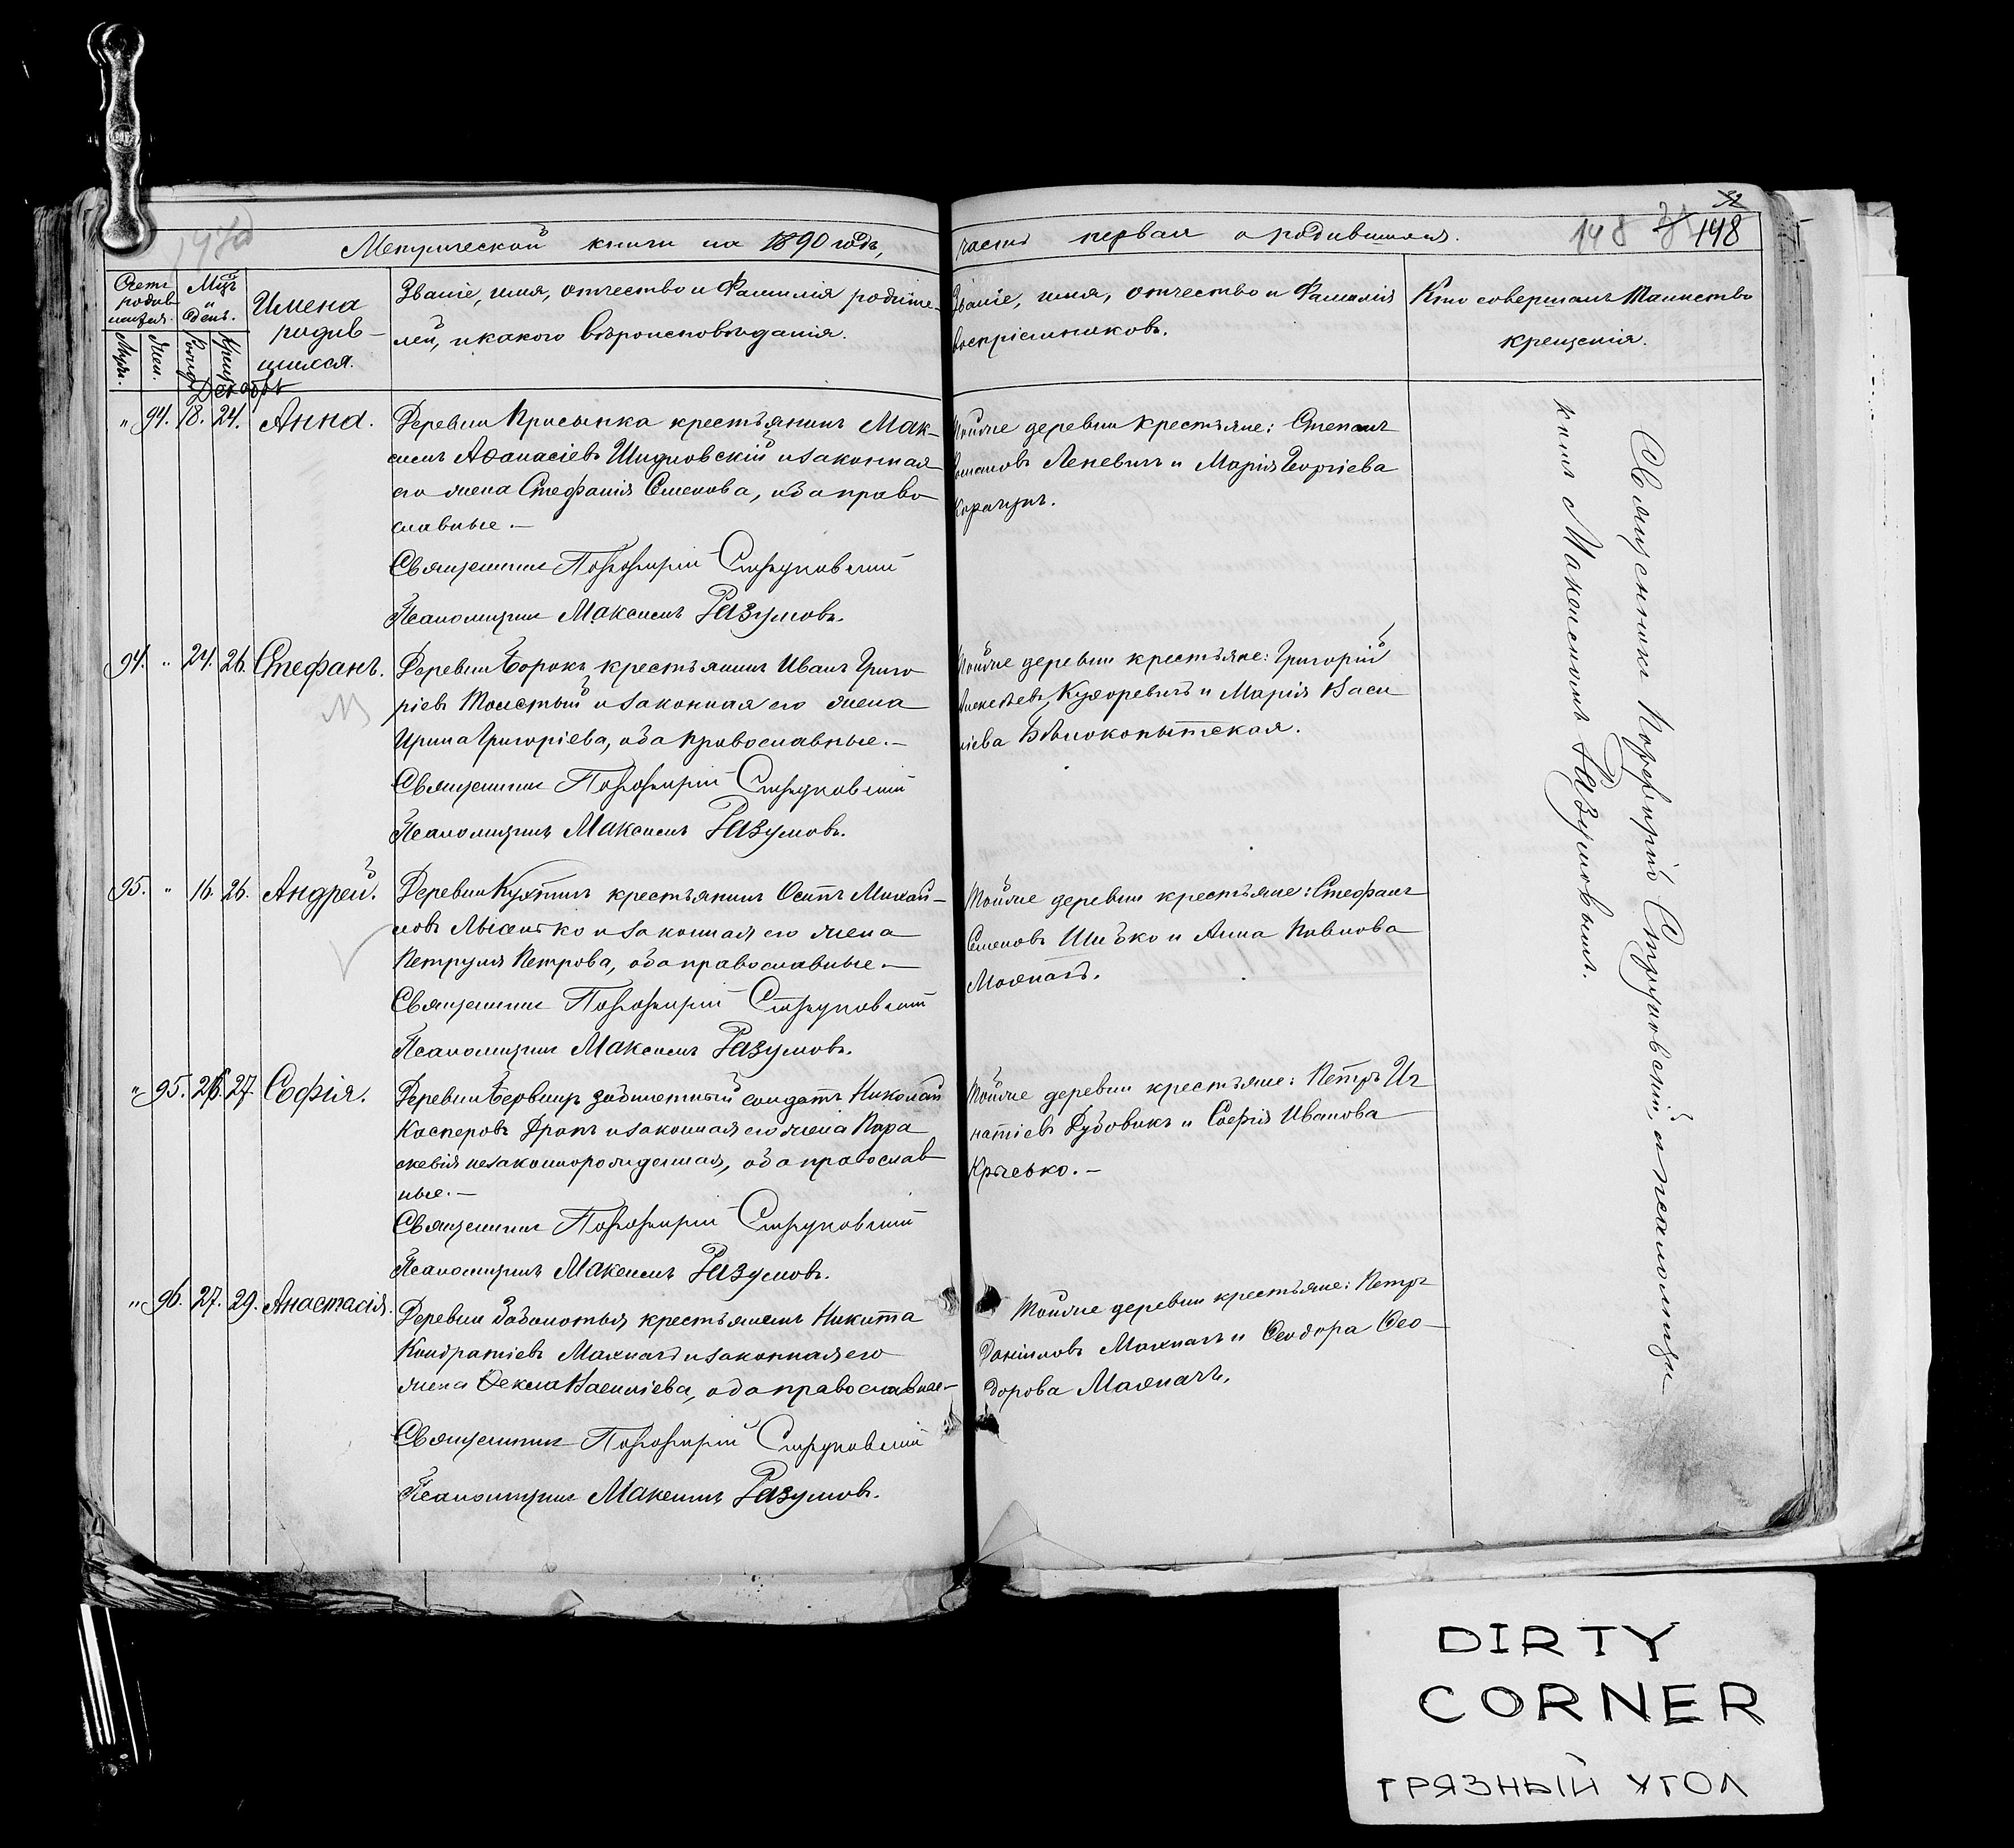 Метрической книги на 1890 годъ,
часть первая о родившихся.
148
148
Счетъ родив-
шихся.
Мѣс.
и
день.
Имена
родив-
шихся.
Званіе, имя, отчество и Фамилія родите-
лей, и какого вѣроисповѣданія.
Званіе, имя, отчество и Фамилія
воспріемниковъ.
Кто совершалъ Таинство
крещенія.
Муж.
Жен.
Рожд.
Крещ.
Декабрь
" 94. 18. 24. Анна.
Деревни Присынка крестьянинъ Мак-
симъ Аѳанасіевъ Шидловскій и законная
его жена Стефанія Семенова, оба право
славные.—
Священникъ Порфирій Струковскій
Псаломщикъ Максимъ Разумовъ.
Тойже деревни крестьяне: Степанъ
Леневичъ и Марія Георгіева
94. " 24. 26. Стефанъ.
Деревни Борокъ крестьянинъ Иванъ Григо
ріевъ Толстый и законная его жена
Ирина Григоріева, оба православные.—
Священникъ Порфирій Струковскій
Псаломщикъ Максимъ Разумовъ.
Тойже деревни крестьяне: Григорій
Алексѣевъ Кухоревичъ и Марія Васи
ліева Бѣлокопытская.
95. " 16. 26. Андрей.
Деревни Кухтичъ крестьянинъ Осипъ Михай-
ловъ и законная его жена
Петруля Петрова, оба православные.—
Священникъ Порфирій Струковскій
Псаломщикъ Максимъ Разумовъ.
Тойже деревни крестьяне: Стефанъ
Семеновъ Шибко и Анна Павлова
Махначъ.
" 95. 26. 27. Софія.
Деревни безбилетный солдатъ Николай
Касперовъ и законная его жена Пара
скевія незаконнорожденная, оба православ
ные.—
Священникъ Порфирій Струковскій
Псаломщикъ Максимъ Разумовъ.
Тойже деревни крестьяне: Петръ Иг
натіевъ Дубовикъ и Софія Иванова
" 96. 27. 29. Анастасія.
Деревни Заболотья крестьянинъ Никита
Кондратіевъ Махначъ и законная его
жена Ѳекла Василіева, оба православные—
Священникъ Порфирій Струковскій
Псаломщикъ Максимъ Разумовъ.
Тойже деревни крестьяне: Петръ
Даниловъ Махначъ и Ѳеодора Ѳео-
дорова Махначъ.
Священникъ Порфирій Струковскій, съ псаломщи
комъ Максимомъ Разумовымъ.
DIRTY
CORNER
ГРЯЗНЫЙ УГОЛ